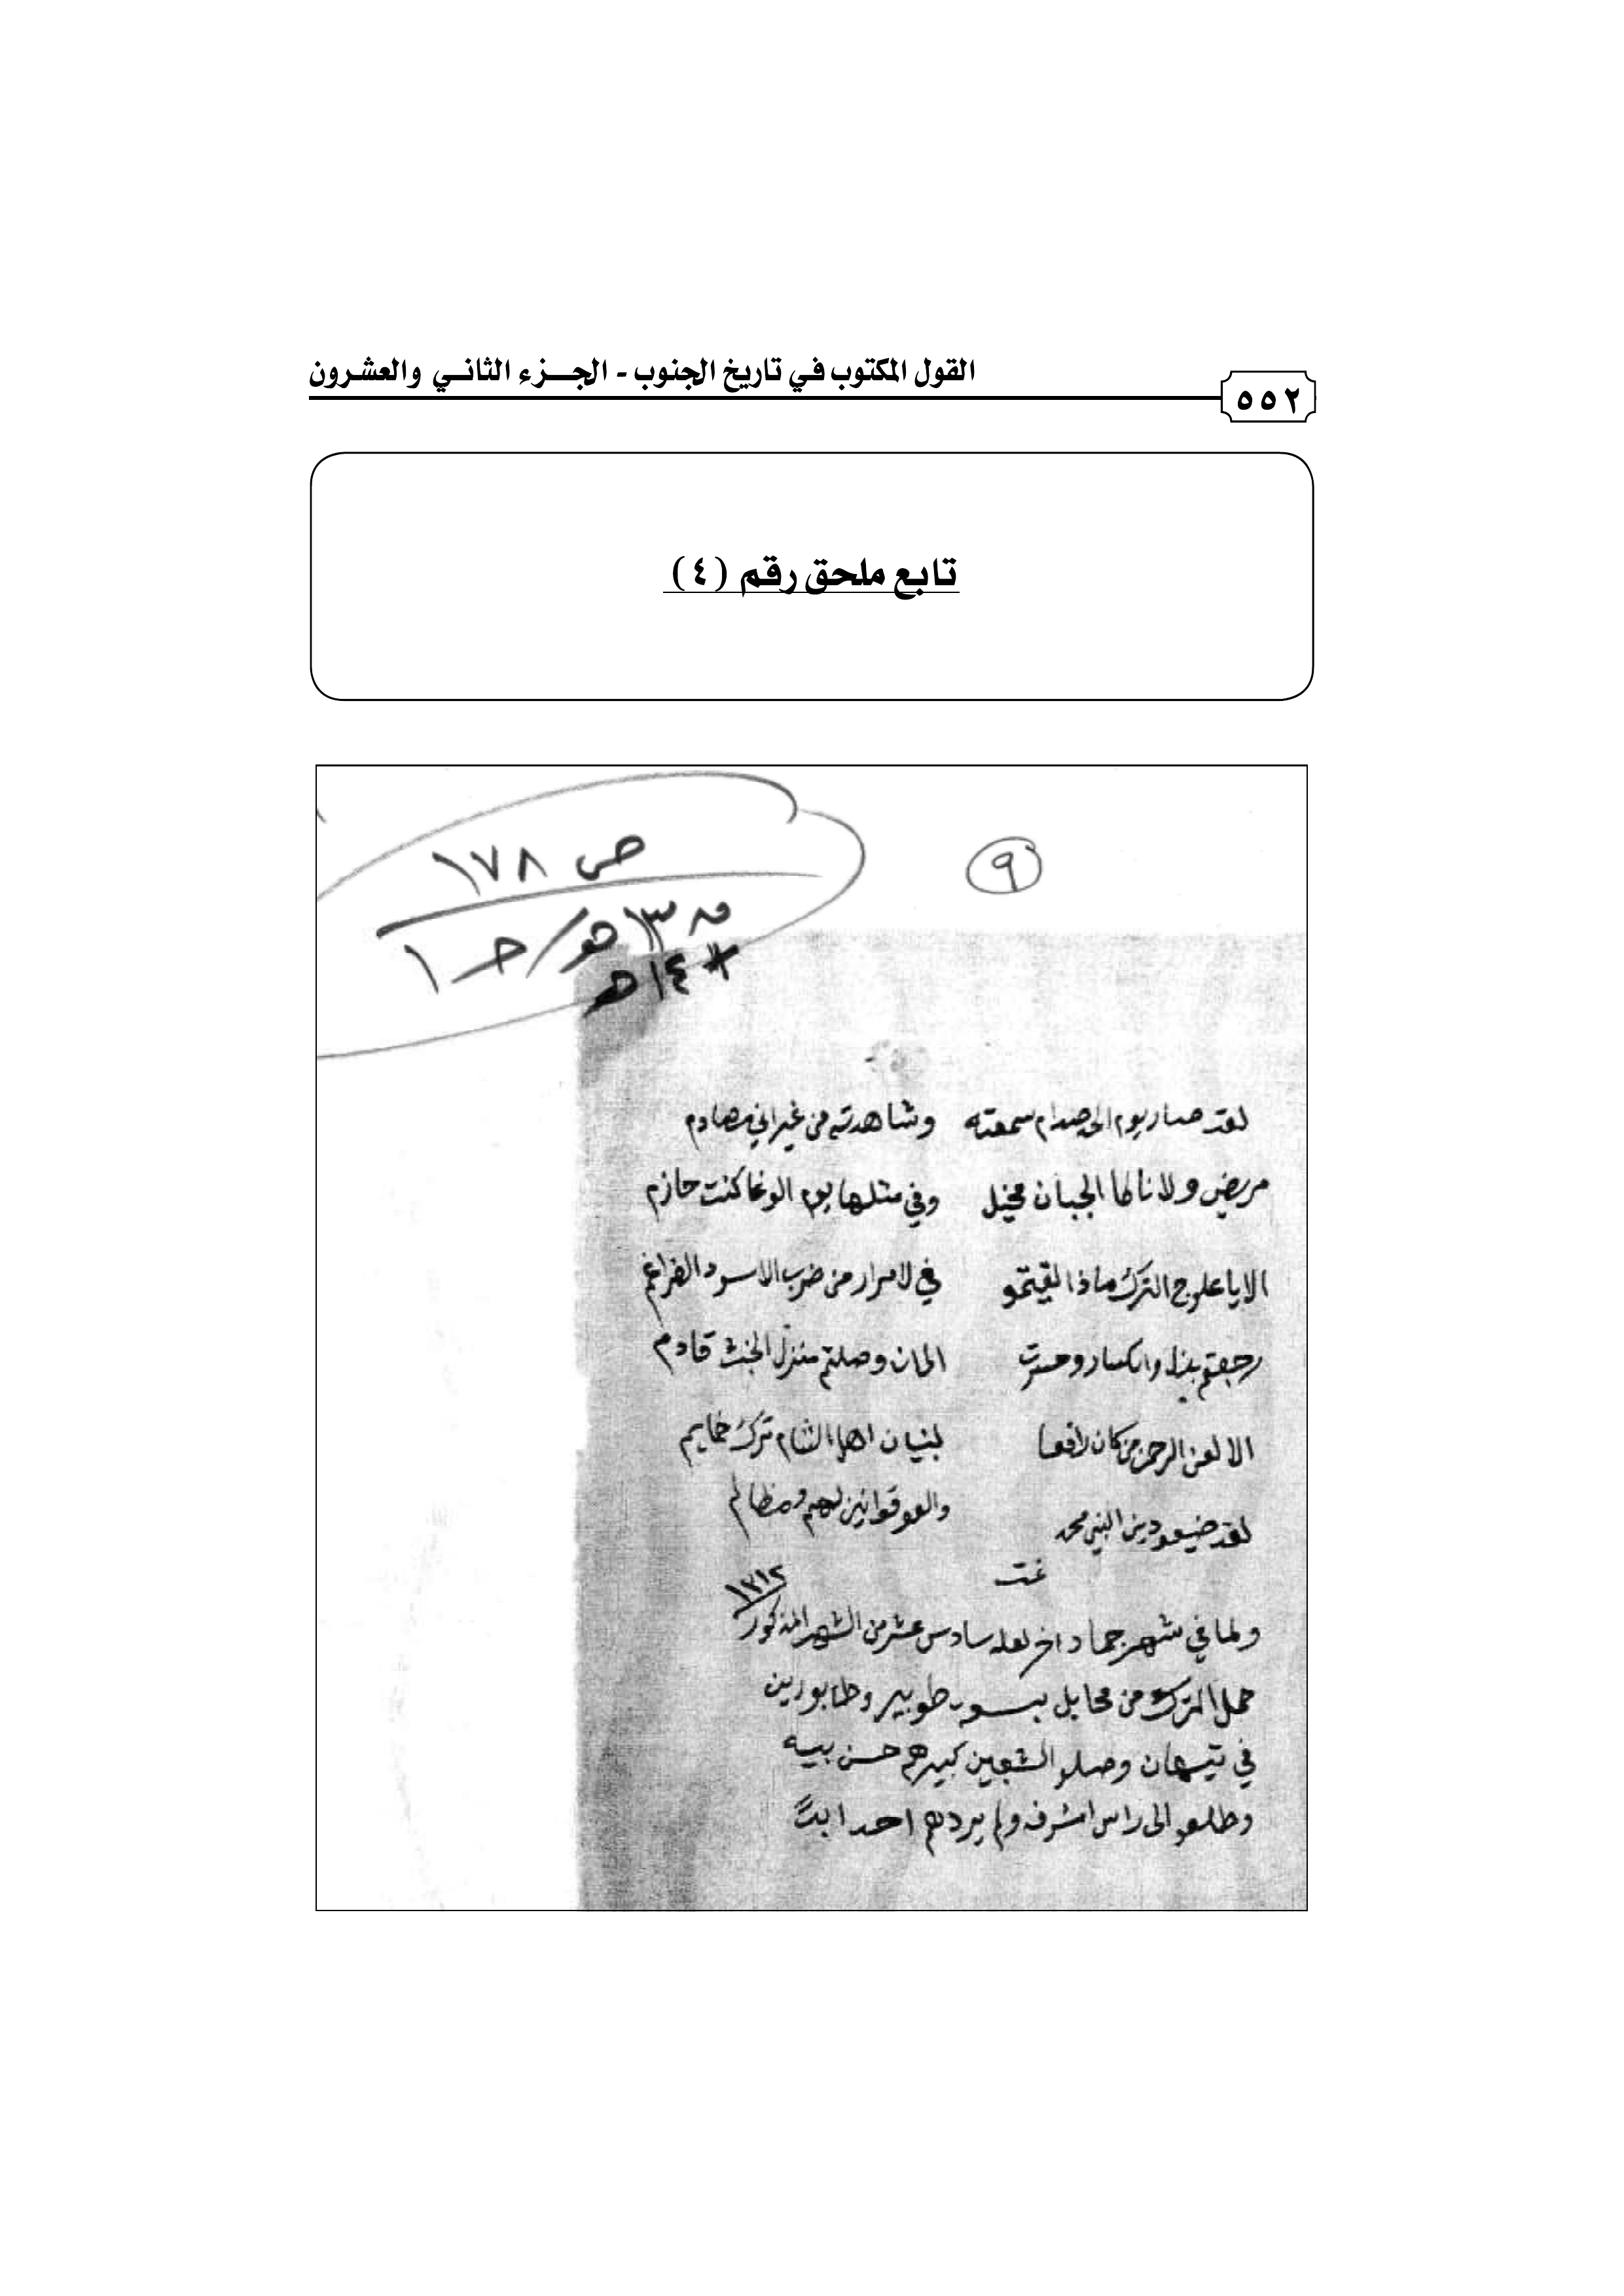 القول المكتوب في تاريخ الجنوب - الجزء الثاني والعشرون
٥٥٢
تابع ملحق رقم (٤)
ص ١٧٨
١٣ هـ / حـ ١
١٤ هـ
٩
لقد صار يوم الحصدام سمعته وشاهدته من غير اني مصادم
مريض ولا نالها الجبان مخيل وفي مثلها يوم الوغا كنت حازم
الا يا علوج الترك ماذا لقيتمو في لامرار من ضرب الاسود الضراغم
رجعتم بذل وانكسار وحسرت الى ان وصلتم منزل الخبث قادم
الا لعن الرحمن من كان رافعا لبنيان اهل الشام ترك
لقد ضيعو دين النبي محمد والغو قوانين لهم ومظالم
تمت
١٣١٢
ولما في شهر جماد اخر لعله سادس عشر من الشهر المذكور
حمل الترك من محايل وطابورين
في تيهان وصلو الشعبين كبيرهم حسن بيه
وطلعو الى راس امشرف ولم يردهم احد ابدًا